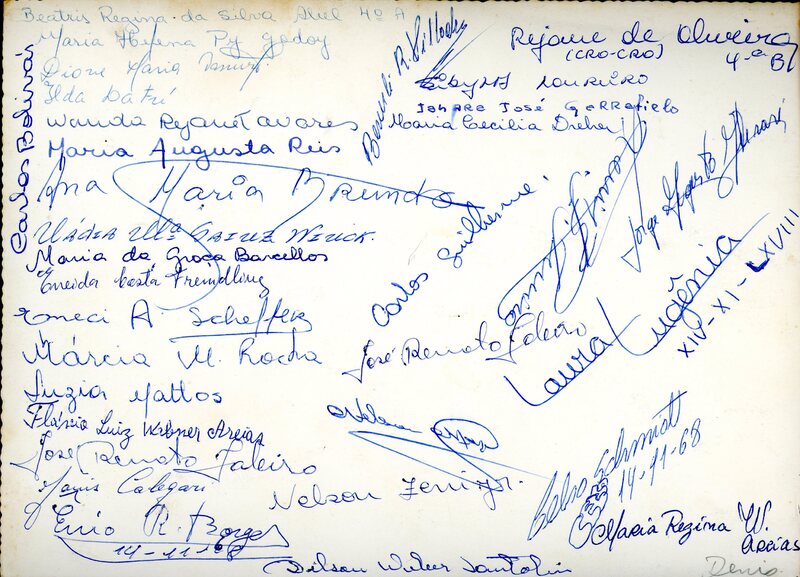 Beatris Regina da Silva Abel 4º A
Maria Helena Py Godoy
Dione Maria
Ilda Datri
Wanda Rejane Tavares
Maria Augusta Reis
Ana Maria Brenda
Maria da Graça Barcellos
Eneida Costa Fremdling
Eneci A. Scheffer
Márcia M. Rocha
Luzia Mattos
Flávio Luiz Webner Areias
José Renato Faleiro
Calegari
Enio R. Borges
14-11-68
Carlos Bolivar
Rejane de Oliveira
(CRO-CRO)
4-a B
Loureiro
José Garrafielo
Maria Cecilia Dreher
Carlos Guilherme
Jorge
José Renato Faleiro
Laura Eugênia
XIV-XI-LXVIII
Helena
Nelson
Celso Schmidt
14-11-68
Maria Regina W.
Areias
Dilson Weber Santolin
Denis